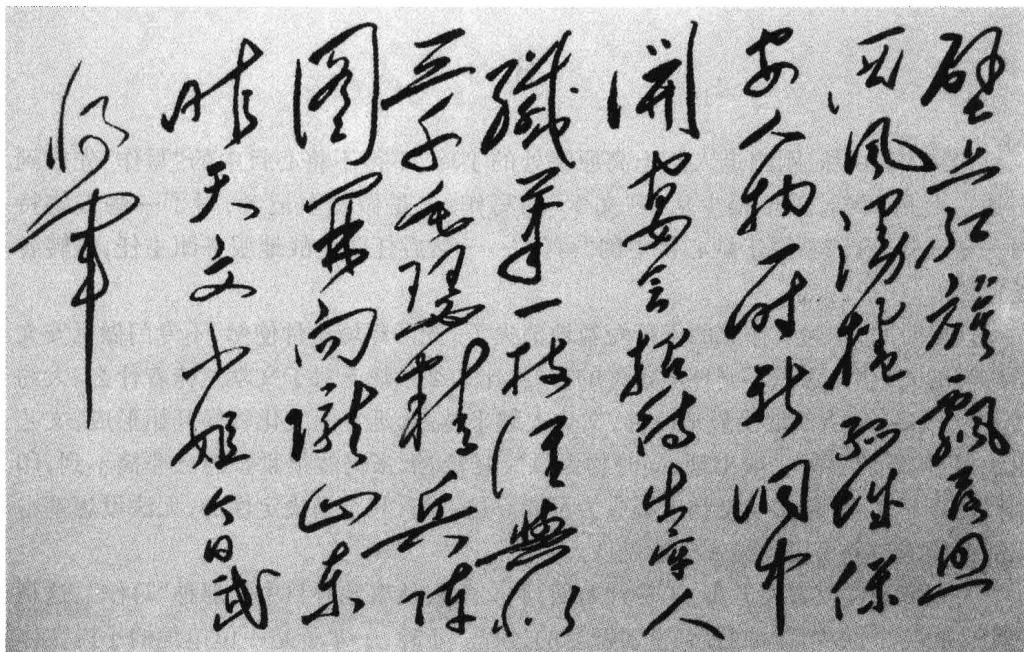 壁上红旗飘落照
西风漫捲孤城保
安人物一时新洞中
開宴会招待出牢人
纖筆一枝谁與似
三千毛瑟精兵陣
图開向隴山东
昨天文小姐今日武
将军